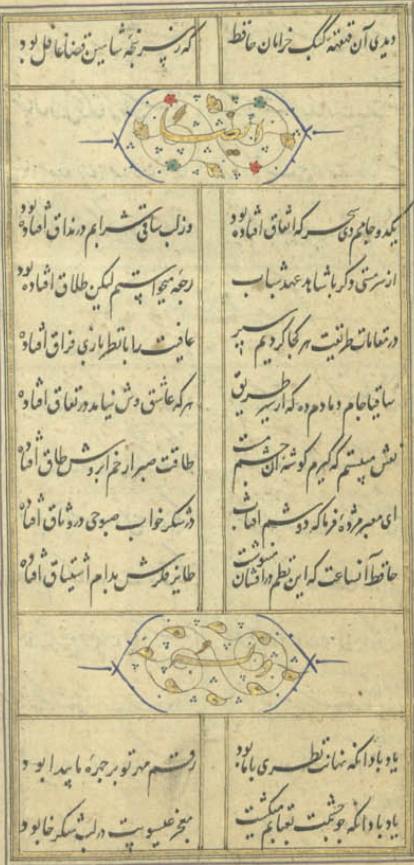 دیدی آن قهقهه کبک خرامان حافظ که ز سرپنجه شاهین قضا غافل بود
ایضا
یکدو جامم دی سحر که اتفاق افتاده بود وز لب ساقی شرابم در مذاق افتاده بود
از سر مستی دگر با شاهد عهد شباب رجعه میخواستم لیکن طلاق افتاده بود
در مقامات طریقت هر کجا کردیم سیر عافیت را با نظربازی فراق افتاده
ساقیا جام دمادم ده که در سیر طریق هر که عاشق وش نیامد در نفاق افتاده
نقش می بستم که گیرم گوشه زان چشم مست طاقت صبر از خم ابروش طاق افتاده
ای معبر مژده فرما که دوشم آفتاب در شکر خواب صبوحی در وثاق افتاده
حافظ آنساعت که این نظم پریشان مینوشت طایر فکرش بدام اشتیاق افتاده
وله
یاد باد آنکه نهانت نظری با ما بود رقم مهر تو بر چهره ما پیدا بود
یاد باد آنکه چو چشمت بعتابم میکشت معجز عیسویت در لب شکرخا بود